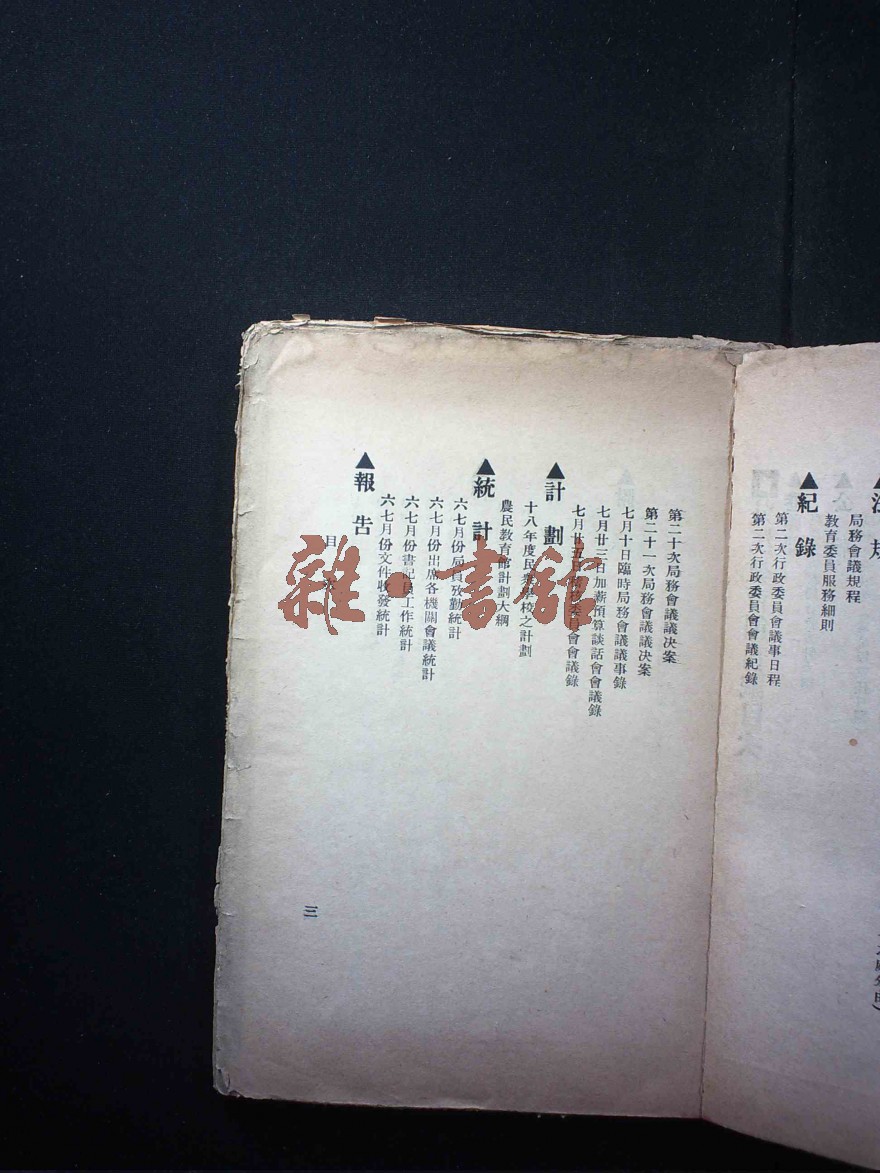 法規
局務會議規程
教育委員服務細則
▲紀錄
第二次行政委員會議事日程
第二次行政委員會會議紀錄
第二十次局務會議議决案
第二十一次局務會議議决案
七月十日臨時局務會議議事錄
七月廿三日加薪預算談話會會議錄
七月廿五日 委員會會議錄
▲計劃
十八年度民衆學校之計劃
農民教育館計劃大綱
▲統計
六七月份局員攷勤統計
六七月份出席各機關會議統計
六七月份書記員工作統計
六七月份文件收發統計
▲報告
目
三
雜·書館